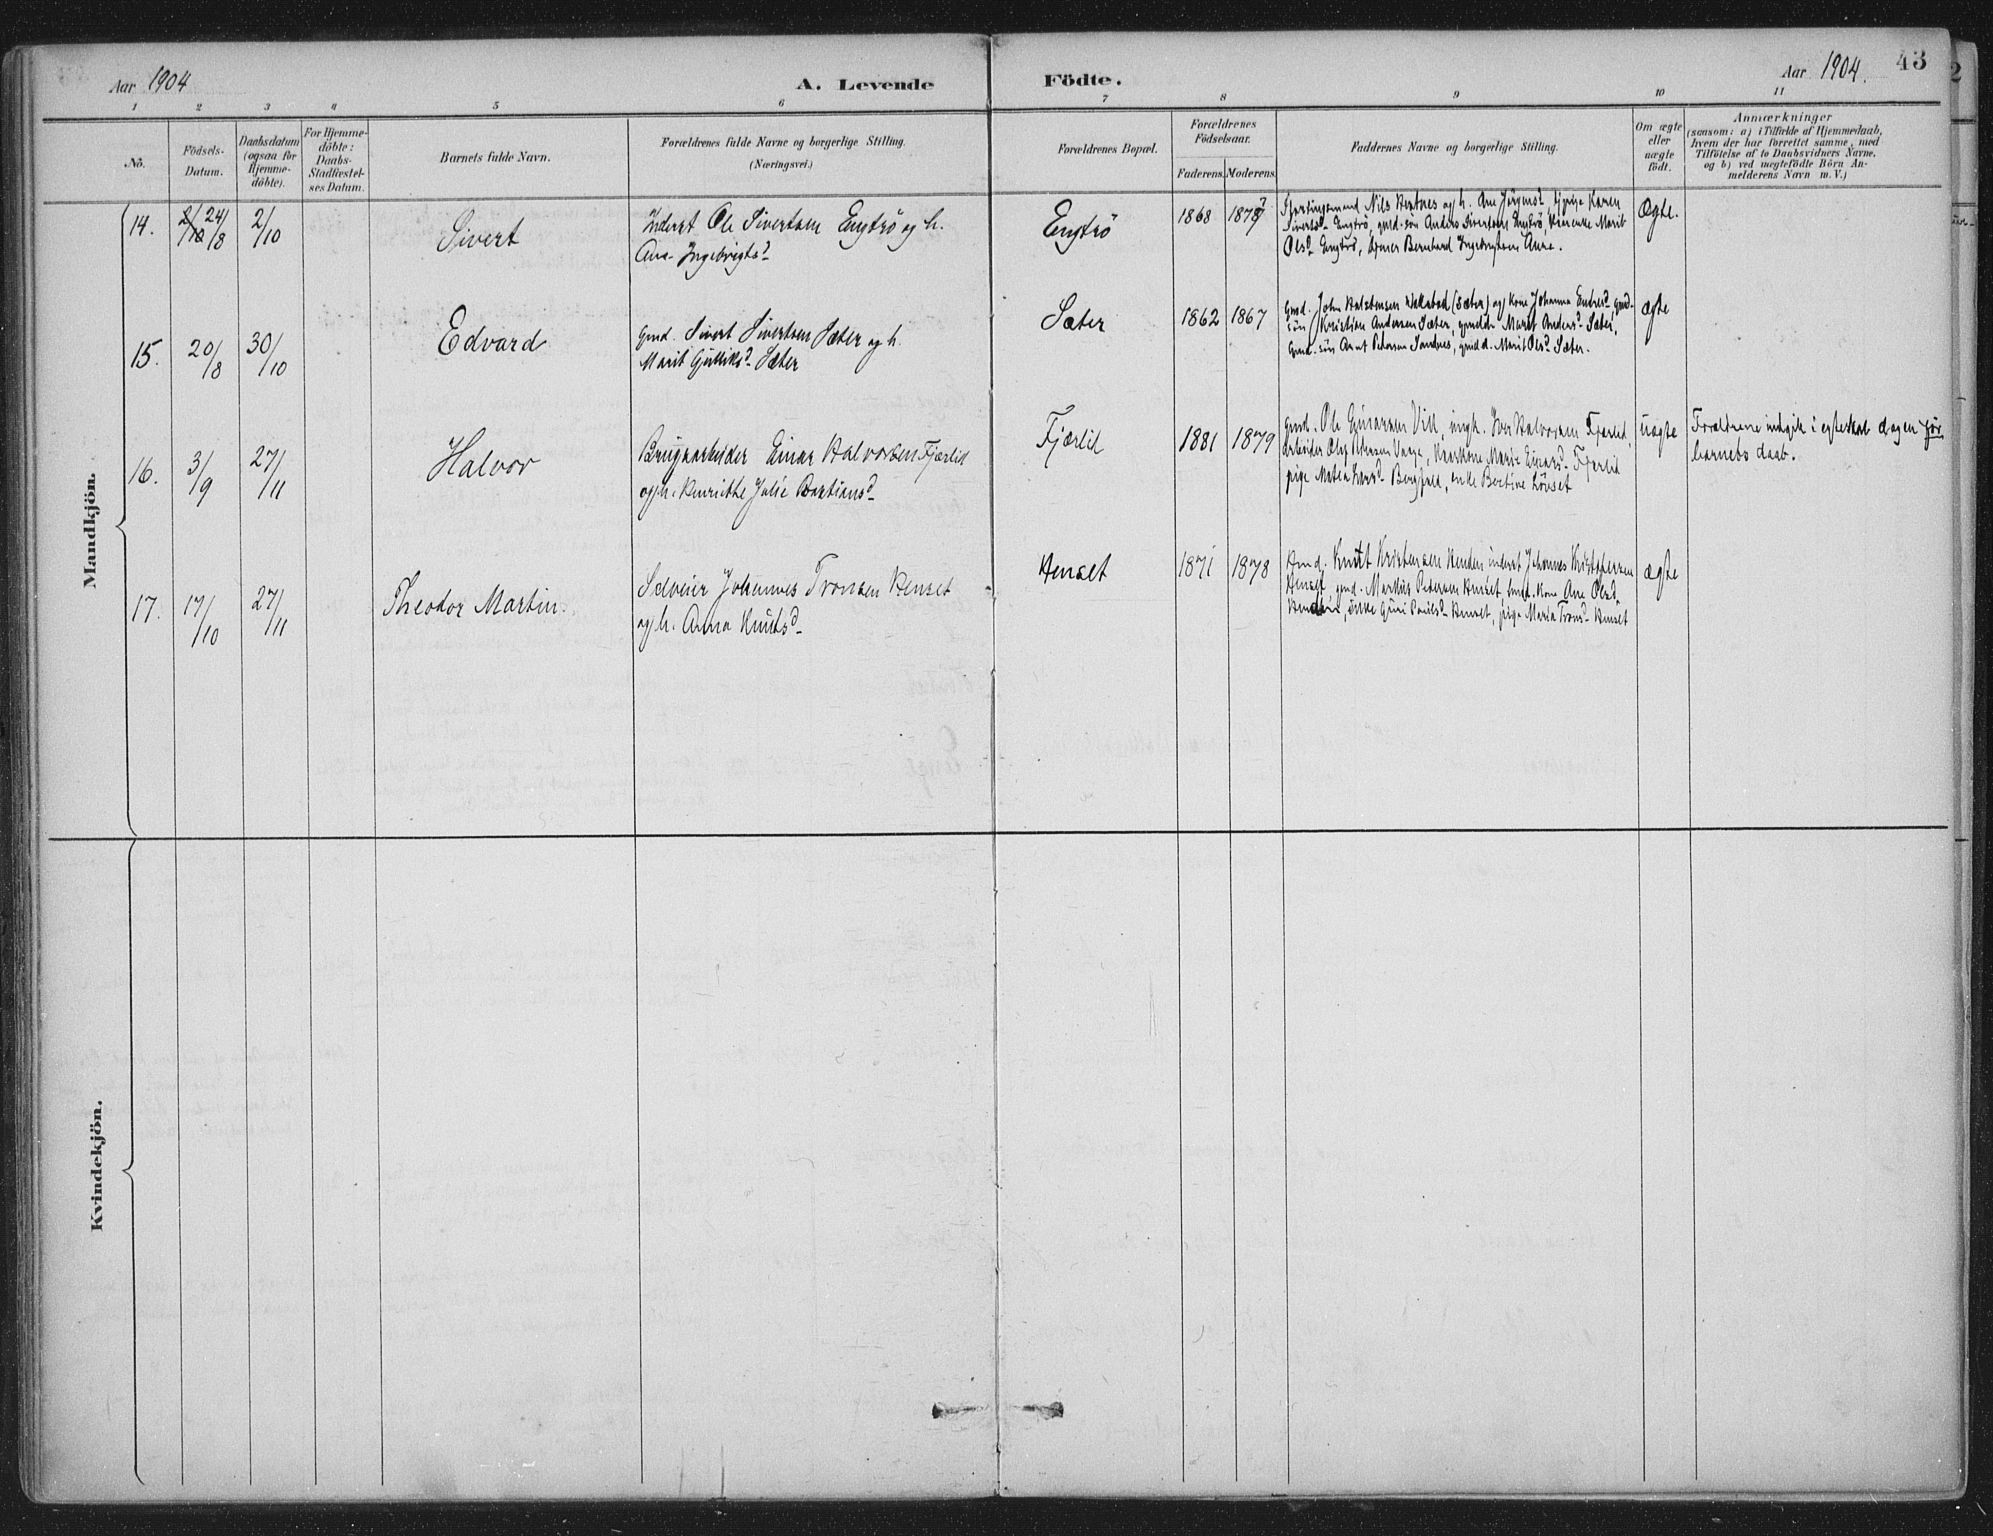 Aar 1904
A. Levende
Födte.
Aar 1904.
43
1 2 3 4 5 6 7 8 9 10 11
No.
Födsels-
Datum.
Daabsdatum
(ogsaa for
Hjemme-
döbte).
For Hjemme-
döbte:
Daabs-
Stadfæstel-
ses Datum.
Barnets fulde Navn.
Forældrenes fulde Navne og borgerlige Stilling.
(Næringsvei.)
Forældrenes Bopæl.
Forældrenes
Födselsaar.
Faderens. Moderens.
Faddernes Navne og borgerlige Stilling.
Om ægte
eller
uægte
födt.
Anmærkninger
(saasom: a) i Tilfælde af Hjemmedaab,
hvem der har forrettet samme, med
Tilföielse af to Daabsvidners Navne,
og b) ved uægtefödte Börn An-
melderens Navn m. V.)
Mandkjön.
14. 24/8 2/10 Sivert
Inderst Ole Sivertsen Engtrö og h.
Ana Ingebrigtsd
Engtrö 1868
Nils og h. Ane pige Karen
Sivertsd Engtrö, gmd. sön Anders Sivertsen Engtrö, Marit
Olsd Engtrö, Bernhard Ingebrigtsen Aune.
Ægte.
15. 20/8 30/10 Edvard
Gmd. Sivert Sivertsen Sæter og h.
Marit Gulliksd Sæter
Sæter 1862 1867
Gmd. John Halstensen (Sæter) og Kone Johanna gmd.
sön Kristian Andersen Sæter, Marit Andersd Sæter,
Gmd. sön Arnt Petersen Sandnes, gmd d. Marit Olsd Sæter.
ægte
16. 3/9 27/11 Halvor
Brugsarbeider Einar Halvorsen Fjærlid
og h. Henriette Julie Bastiansd
Fjærlid 1881 1879
Gmd. Ole Einarsen ungk. Iver Halvorsen Fjærlid,
arbeider Ole Marie Einarsd Fjærlid
pige enke Bertine Lövset
uægte
Forældrene indgik i egteskab dagen før
barnets daab.
17. 17/10 27/11 Theodor Martin
Selveier Johannes Tronsen Henset
og h. Anna Knutsd
Henset 1871 1878
Gmd. Knut Kristensen Henden inderst Johannes Kristofersen
Henset, gmd. Markus Petersen Henset, Gmd. Kone Ane Olsd
Henden, enke Guri Paulsd Henset, pige Maria Tronsd Henset
ægte
Kvindekjön.